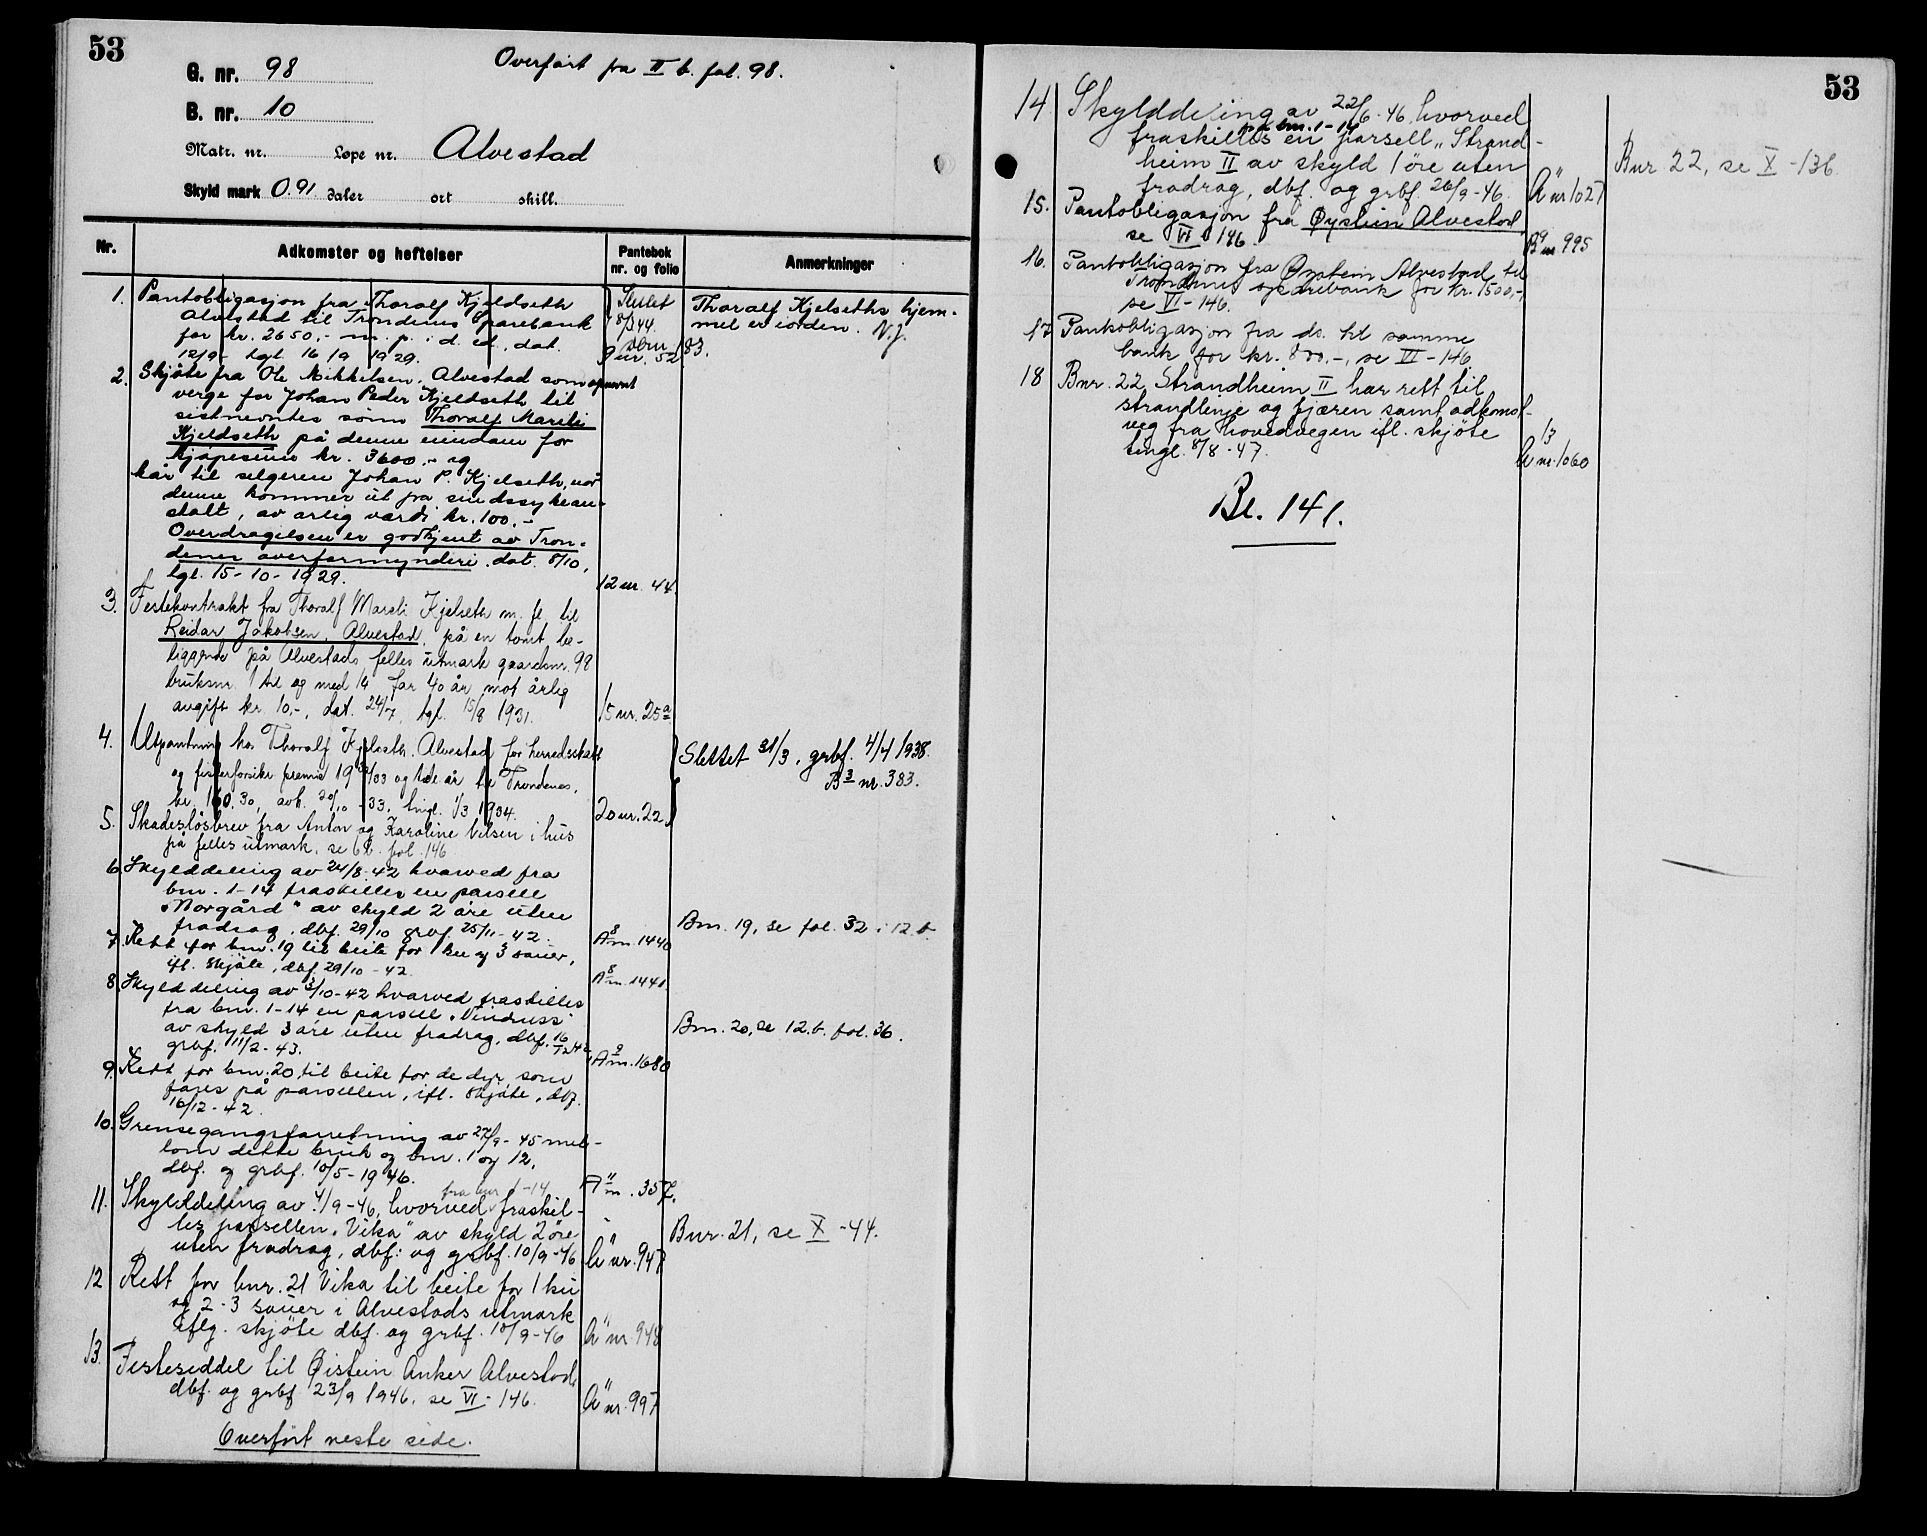 53
G. nr. 98
Overfört fra II b. fol. 98.
B. nr. 10
Matr. nr. Løpe nr. Alvestad
Skyld mark 0.91 daler ort skill.
Nr. Adkomster og heftelser Pantebok nr. og folio Anmerkninger
1. Pantobligasjon fra Thoralf Kjeldseth
Alvestad til Trondenes Sparebank
for kr. 2650,- m. p. i d. ed., dat.
12/9- tgl. 16/9 1929.
9 nr. 52
Thoralf Kjelseths hjem-
mel er iorden. N.J.
2. Skjöte fra Ole Mikkelsen Alvestad som opnevnt
verge for Johan Peder Kjeldseth til
sistnevntes sönn Thoralf Mareli
Kjeldseth på denne eiendom for
kjöpesum kr. 3600.- og
kår til selgeren Johan P. Kjelseth, når
denne kommer ut fra sindssykean-
stalt, av årlig værdi kr. 100.-
Overdragelsen er godkjent av Tron-
denes overformynderi. dat. 8/10,
tgl. 15-10-1929.
12 nr. 44.
3. Festekontrakt fra Thoralf Mareli Kjelseth m. fl. til
Reidar Jakobsen, Alvestad, på en tomt be-
liggende på Alvestads felles utmark gaardsnr. 98
bruksnr. 1 til og med 14 for 40 år mot årlig
avgift kr. 10.-, dat. 24/7, tgl. 15/8 1931.
15 nr. 25a
4. Utpantning hos Thoralf Kjelseth, Alvestad for herredsskatt
kr. 160.30, avh. 20/10 -33, tingl. 1/3 1934.
20 nr. 22
Slettet 31/3, grbf. 4/4 1938.
B3 nr. 383.
5. Skadeslösbrev fra Anton og Karoline Nilsen i hus
på felles utmark, se 6 b. fol. 146
6. Skylddeling av 24/8-42 hvorved fra
bnr. 1-14 fraskilles en parsell
"Norgård" av skyld 2 öre uten
fradrag, dbf. 29/10 grbf. 25/11-42.
A8 nr. 1440
Bnr. 19, se fol. 32 i 12.b.
7. Rett for bnr. 19 til beite for 1 ku og 3 sauer,
ifl. skjöte, dbf. 29/10-42.
A8 nr. 1441
8. Skylddeling av 3/10-42 hvorved fraskilles
fra bnr. 1-14 en parsell
av skyld 3 öre uten fradrag, dbf. 16/12 42
grbf. 11/2-43.
A9 nr. 1680
Bnr. 20, se 12.b. fol. 36.
9. Rett for bnr. 20 til beite for de dyr, som
föres på parsellen, ifl. skjöte, dbf.
16/12-42.
10. Grensegangsforretning av 27/9-45 mel-
lom dette bruk og bnr. 1 og 12,
dbf. og grbf. 10/5-1946.
A11 nr. 357.
fra bnr 1-14
11. Skylddeling av 4/9-46, hvorved fraskil-
les parsellen "Vika" av skyld 2 öre
uten fradrag, dbf. og grbf. 10/9-46
A11 nr. 947
Bnr. 21, se X -44.
12 Rett for bnr. 21 Vika til beite for 1 ku
og 2-3 sauer i Alvestads utmark
iflg. skjöte dbf. og grbf. 10/9-46
A11 nr. 948
13. Festeseddel til Øistein Anker Alvestad,
dbf. og grbf 23/9 1946, se VI - 146.
A11 nr. 997
Overfört neste side.
53
14 Skylddeling av 22/6-46, hvorved
fra bnr. 1-14
fraskilles en parsell "Strand-
heim II av skyld 1 öre uten
fradrag, dbf. og grbf. 26/9-46.
A11 nr 1027
Bnr 22, se X -136.
15. Pantobligasjon fra Øystein Alvestad
se VI 146.
B9 nr 995
16. Pantobligasjon fra Øystein Alvestad til
Trondenes sparebank for kr. 1500,-,
se VI - 146.
17 Pantobligasjon fra ds. til samme
bank for kr. 800,-, se VI - 146
18 Bnr. 22 Strandheim II har rett til
strandlinje og fjæren samt adkomst-
veg fra hovedvegen ifl. skjöte
tingl. 8/8-47.
A13 nr. 1060
Bl. 141.